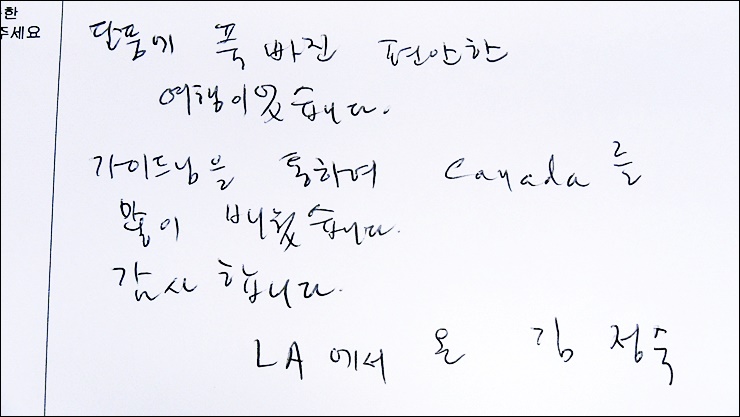 한
주세요
단풍에 푹 빠진 편안한
여행이었습니다.
가이드님을 통하여 Canada를
많이 배웠습니다.
감사합니다.
LA에서 온 김정숙